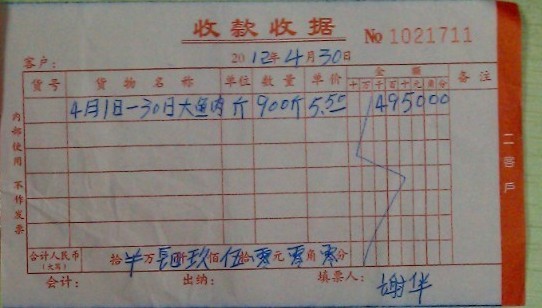 收款收据 No 1021711
客户: 2012年4月30日
货号 货物名称 单位 数量 单价 金额 备注
十 万 千 百 十 元 角 分
4月1日-30日大鱼肉 斤 900斤 5.50 495000
内部使用 不作发票
二 客户
合计人民币 拾 万 肆仟玖佰伍拾零元零角零分
(大写)
会计: 出纳: 填票人: 谢伴